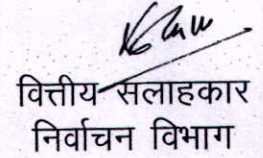 वित्तीय सलाहकार
निर्वाचन विभाग